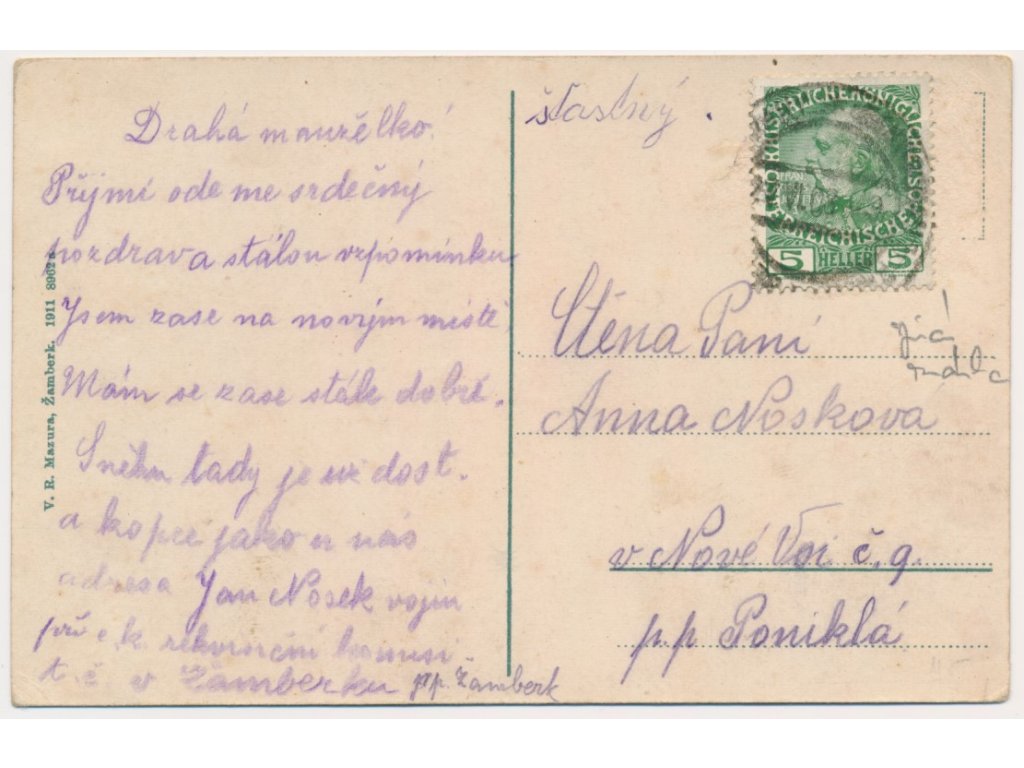 Drahá manželko!
Přijmi ode me srdečný
pozdrav a stálou vzpomínku
Jsem zase na novým místě,
Mám se zase stále dobře.
Sněhu tady je už dost.
a kopce jako u nás
adresa Jan Nosek vojín
při c. k. komisi
t. č. v Žamberku pp. Žamberk
V. R. Mazura, Žamberk. 1911 8962
šťastný.
5 HELLER 5
Ctěna Paní
Anna Noskova
v Nové Vsi č. 9.
p.p Poniklá